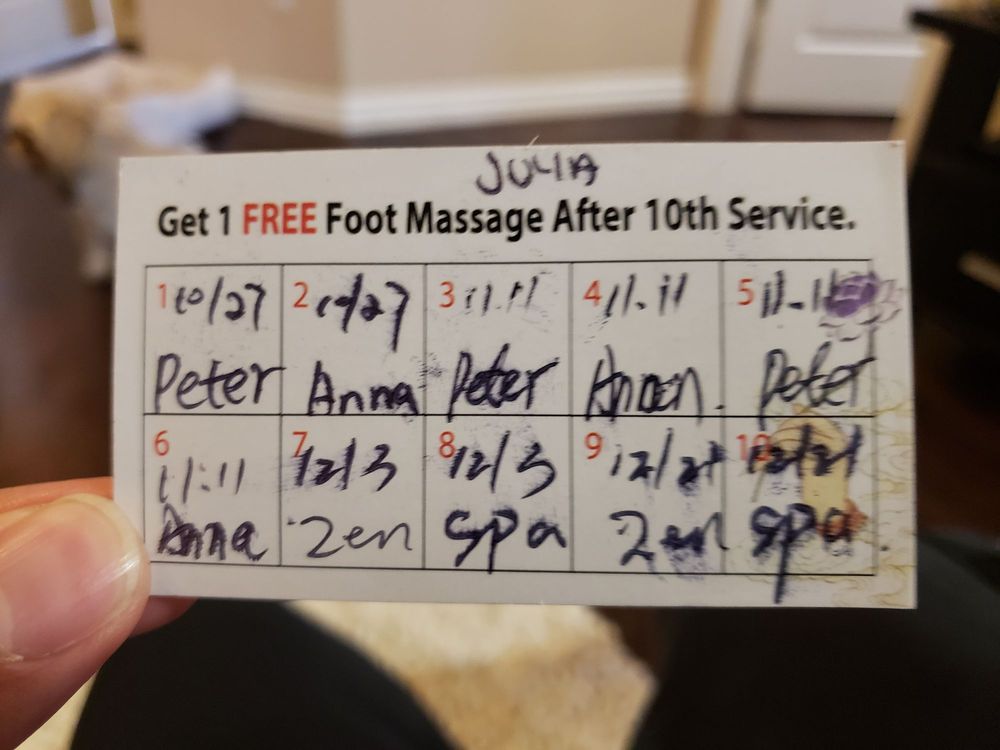 JULIA
Get 1 FREE Foot Massage After 10th Service.
1 10/27 2 10/27 3 11.11 4 11.11 5 11-11
Peter Anna Peter Peter
6 7 12/3 8 12/3 9 12/21 10 12/21
11:11
Anna Zen Spa Zen Spa.